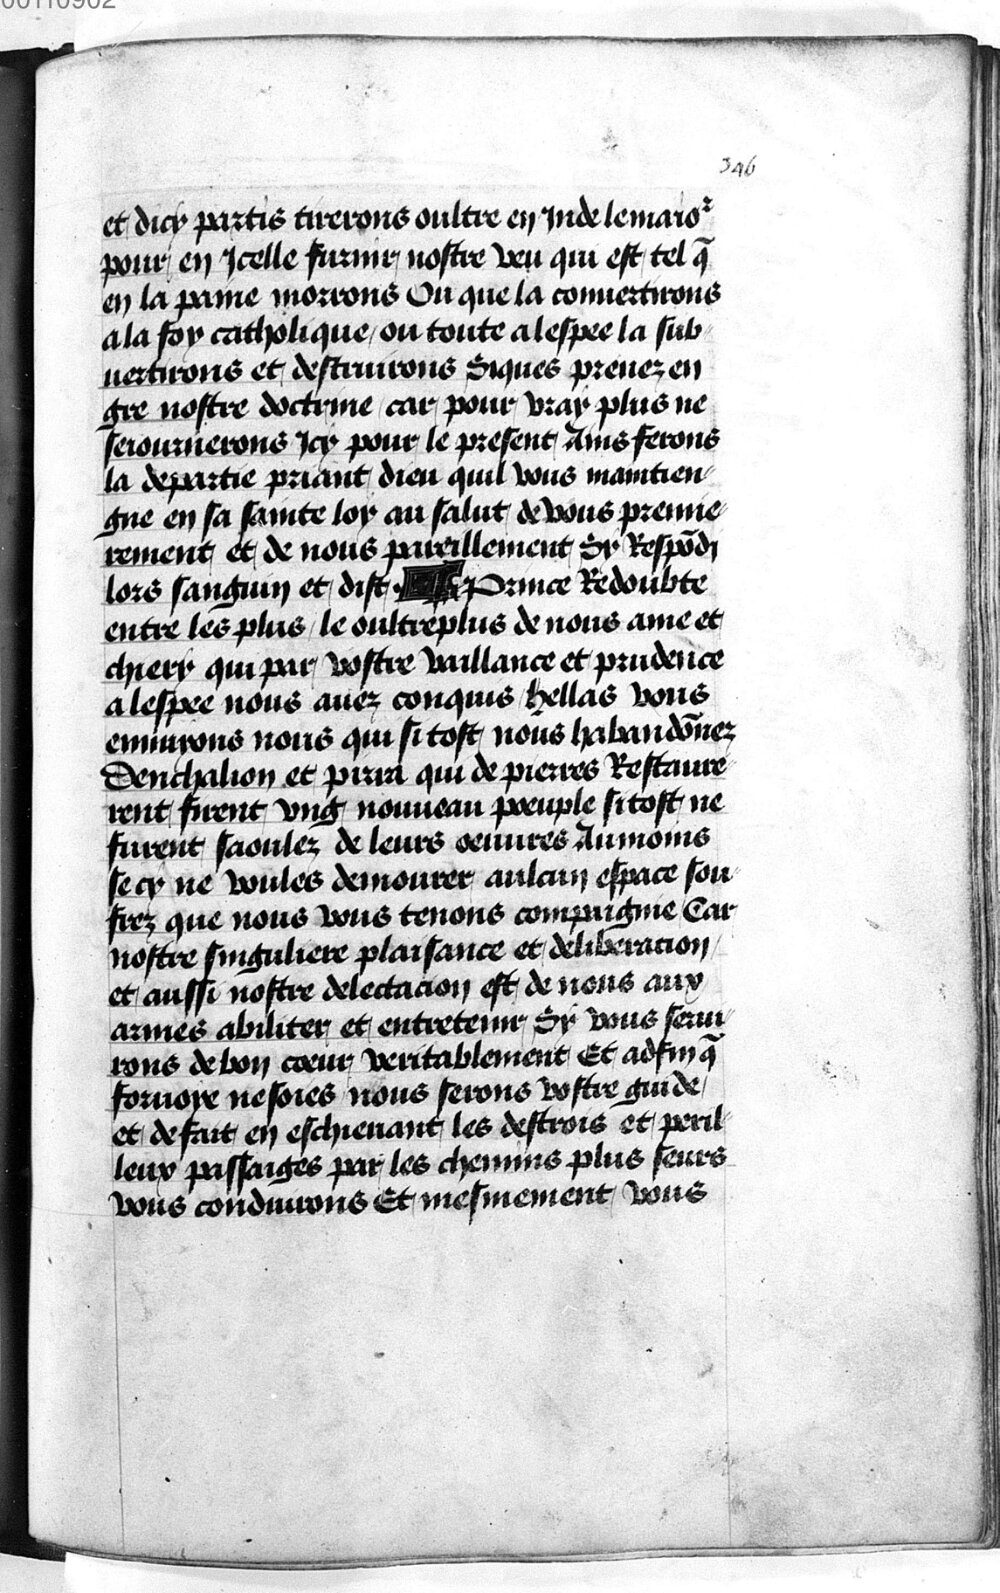 00110902
346
et dicy partis tirerons oultre en Jnde lemaioʳ
pour en Jcelle furnir nostre veu qui est tel q̄
en la paine morrons Ou que la conuertirons
a la foy catholique / ou toute a lespee la sub-
uertirons et destruirons Siques prenez en
gre nostre doctrine car pour vray plus ne
seiournerons Jcy pour le present Ains ferons
la departie priant dieu quil vous maintien-
gne en sa sainte loy au salut de vous premie-
rement et de nous pareillement Sy Respōdi
lors sanguin et dist Prince Redoubte
entre les plus / le oultreplus de nous ame et
chiery qui par vostre vaillance et prudence
a lespee nous auez conquis / hellas vous
ennuyons nous qui si tost nous habandōnez
Denchalion et pirra qui de pierres Restaure-
rent firent vng nouueau poeuple si tost ne
furent saoulez de leurs oeuures Aumoins
se cy ne voules demourer aulcun espace sou-
frez que nous vous tenons compaignie Car
nostre singuliere plaisance et deliberacion /
et aussi nostre delectacion est de nous aux
armes abiliter et entretenir Sy vous serui-
rons de bon coeur veritablement Et adfin q̄
foruoye ne soies nous serons vostre guide /
et de fait en eschieuant les destrois et peril-
leux passaiges par les chemins plus seurs
vous conduirons Et mesmement vous